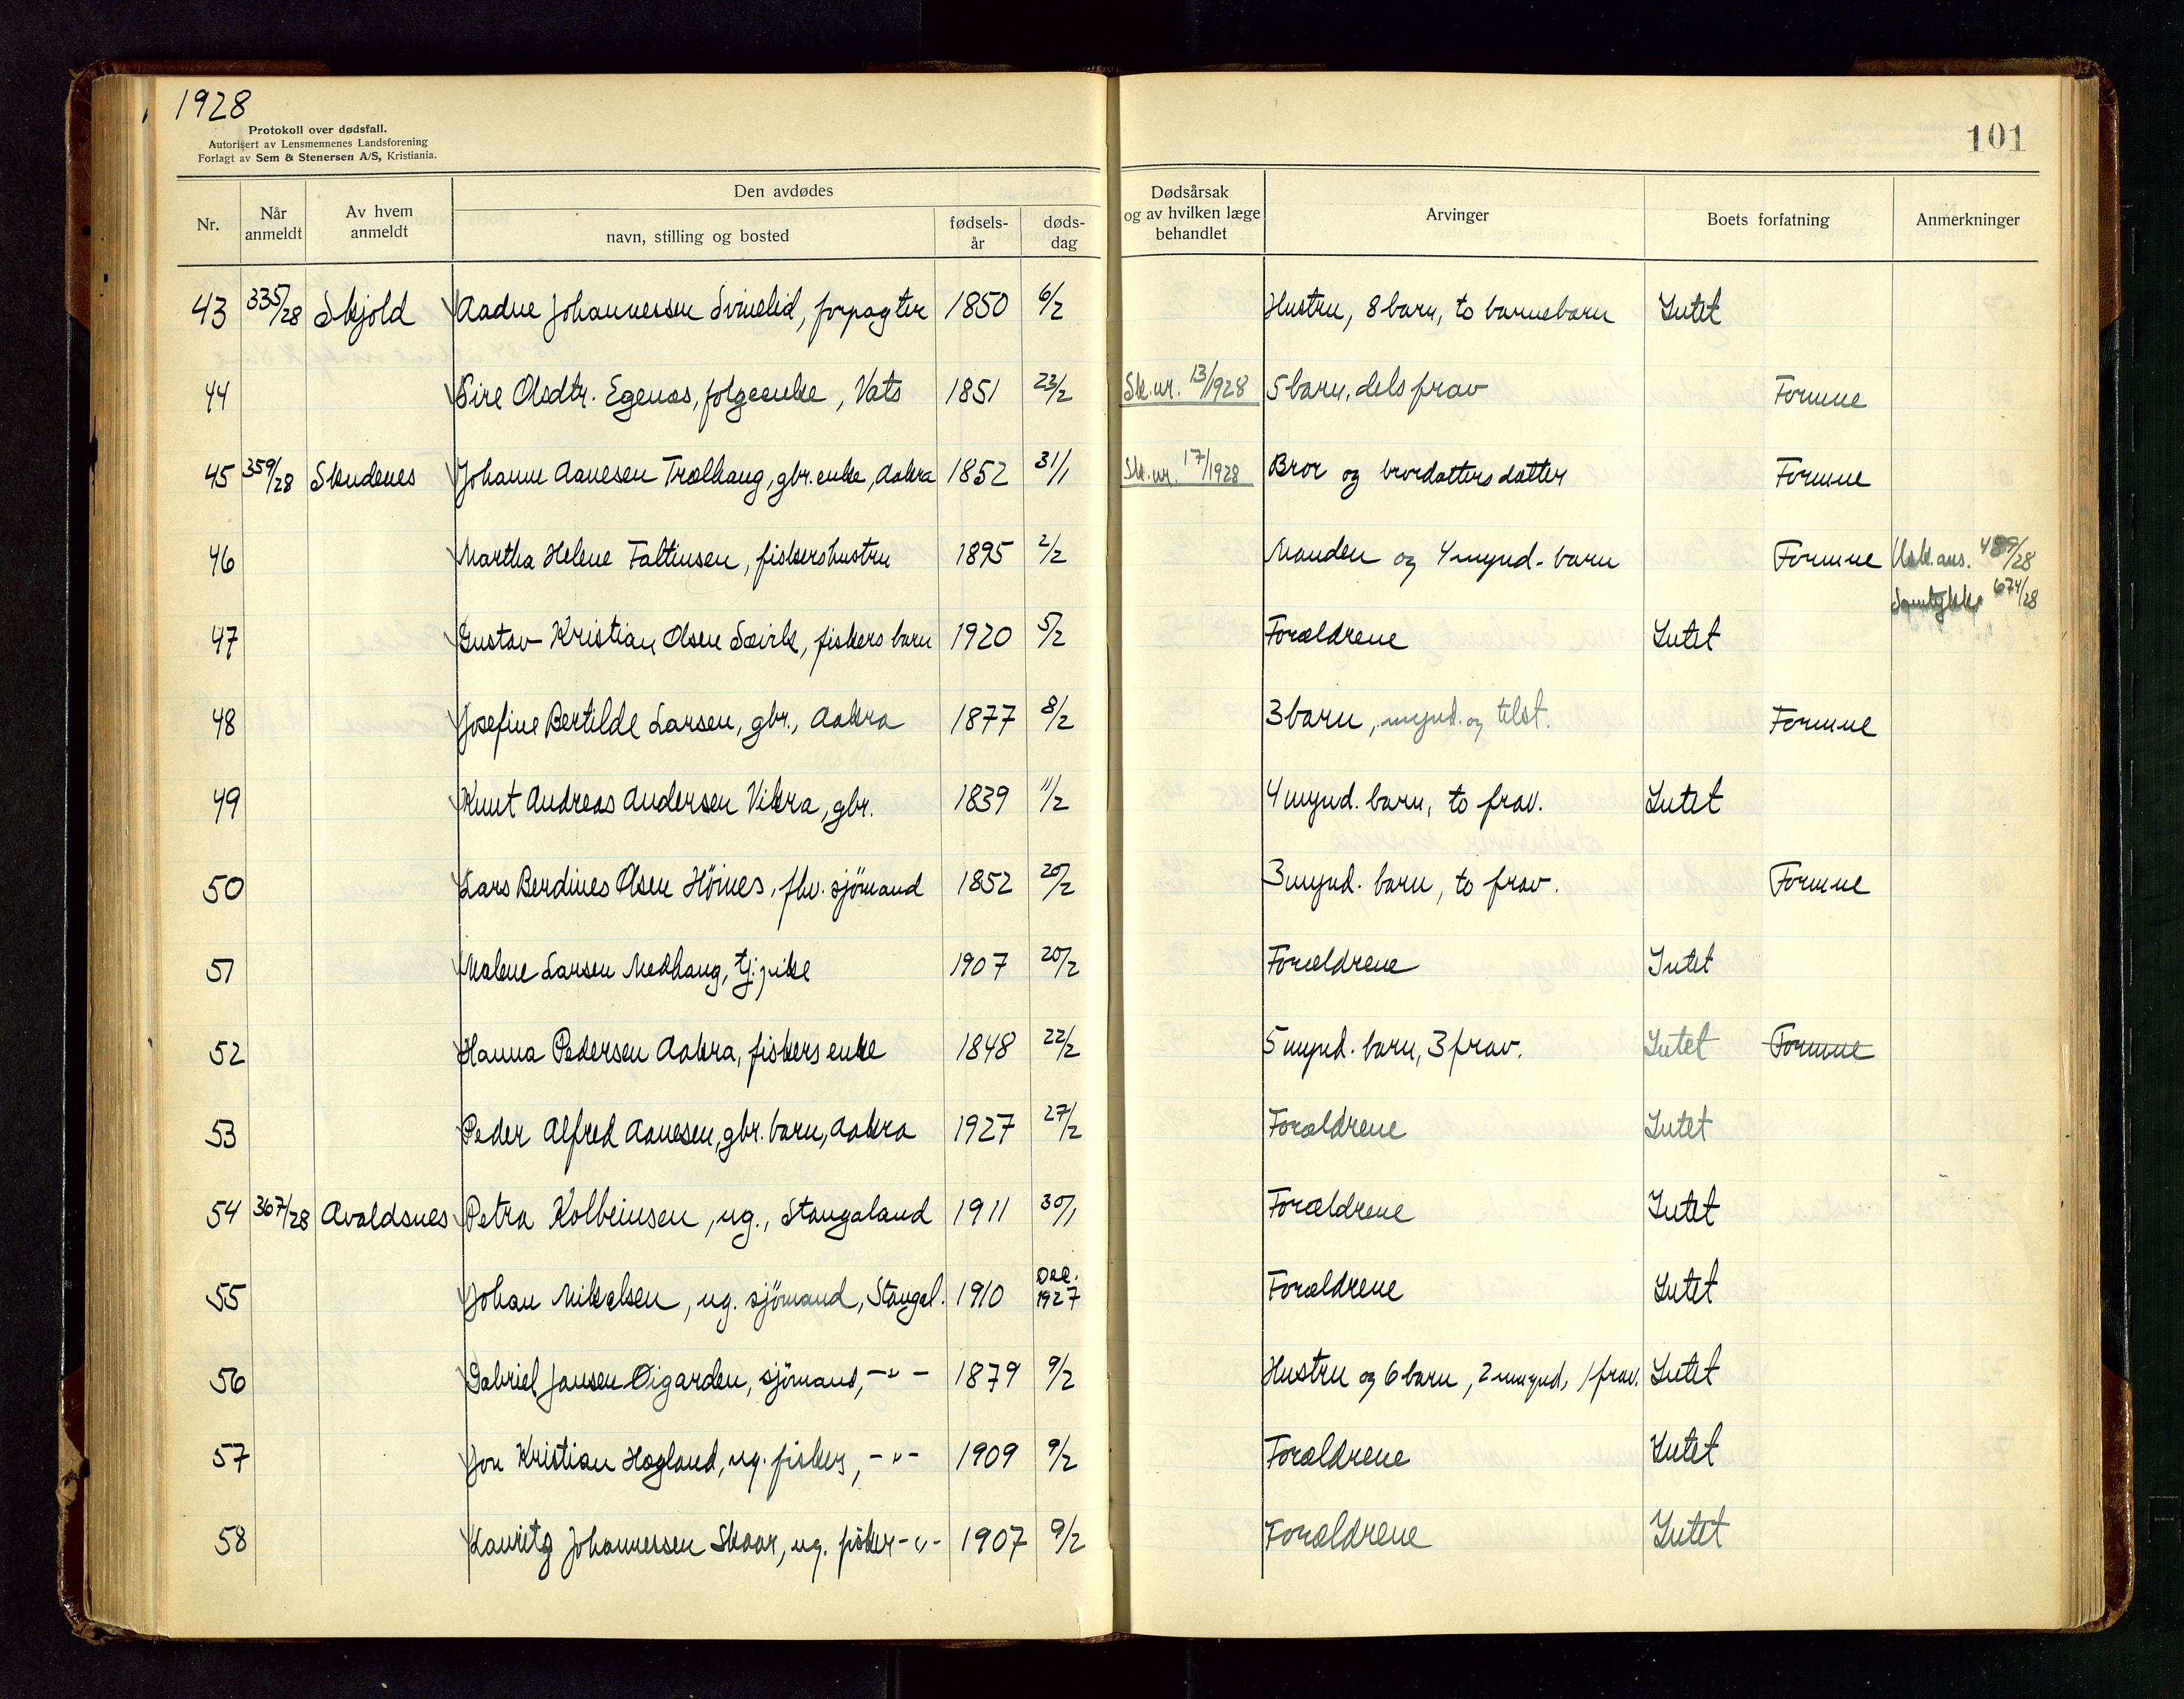 1928
Protokoll over dødsfall.
Autorisert av Lensmennenes Landsforening
Forlagt av Sem & Stenersen A/S, Kristiania.
101
Nr. Når anmeldt Av hvem anmeldt Den avdødes navn, stilling og bosted fødsels-år døds-dag Dødsårsak og av hvilken læge behandlet Arvinger Boets forfatning Anmerkninger
43 335/28 Skjold Aadne Johannessen Svinelid, forpagter 1850 6/2 Hustru, 8 barn, to barnebarn Intet
44 Sire Olsdtr. Egenæs, folgeenke, Vats 1851 23/2 Sk.nr. 13/1928 5 barn, dels frav Formue
45 359/28 Skudenes Johanne Aanesen Trælhaug, gbr. enke, Aakra 1852 31/1 Sk.nr. 17/1928 Bror og brordatters datter Formue
46 Martha Helene Faltinsen, fiskershustru 1895 2/2 Manden og 4 mynd. barn Formue Usk.ans. 489/28
Samtykke 674/28
47 Gustav Kristian Olsen Sævik, fiskers barn 1920 5/2 Forældrene Intet
48 Josefine Bertilde Larsen, gbr., Aakra 1877 8/2 3 barn, mynd. og tilst. Formue
49 Knut Andreas Andersen Vikra, gbr. 1839 11/2 4 mynd. barn, to frav. Intet
50 Lars Berdines Olsen Höines, fhv. sjömand 1852 20/2 3 mynd. barn, to frav. Formue
51 Malene Larsen Medhaug, tj.pike 1907 20/2 Forældrene Intet
52 Hanna Pedersen Aakra, fiskers enke 1848 22/2 5 mynd. barn, 3 frav. Intet Formue
53 Peder Alfred Aanesen, gbr. barn, Aakra 1927 27/2 Forældrene Intet
54 367/28 Avaldsnes Petra Kolbeinsen, ug., Stangaland 1911 30/1 Forældrene Intet
55 Johan Mikalsen, ug. sjömand, Stangal. 1910 Des. 1927 Forældrene Intet
56 Gabriel Jansen Öigarden, sjömand, -"- 1879 9/2 Hustru og 6 barn, 2 mynd, 1 frav. Intet
57 Jon Kristian Hogland, ug. fisker, -"- 1909 9/2 Forældrene Intet
58 Lauritz Johannessen Skaar, ug. fisker -"- 1907 9/2 Forældrene Intet